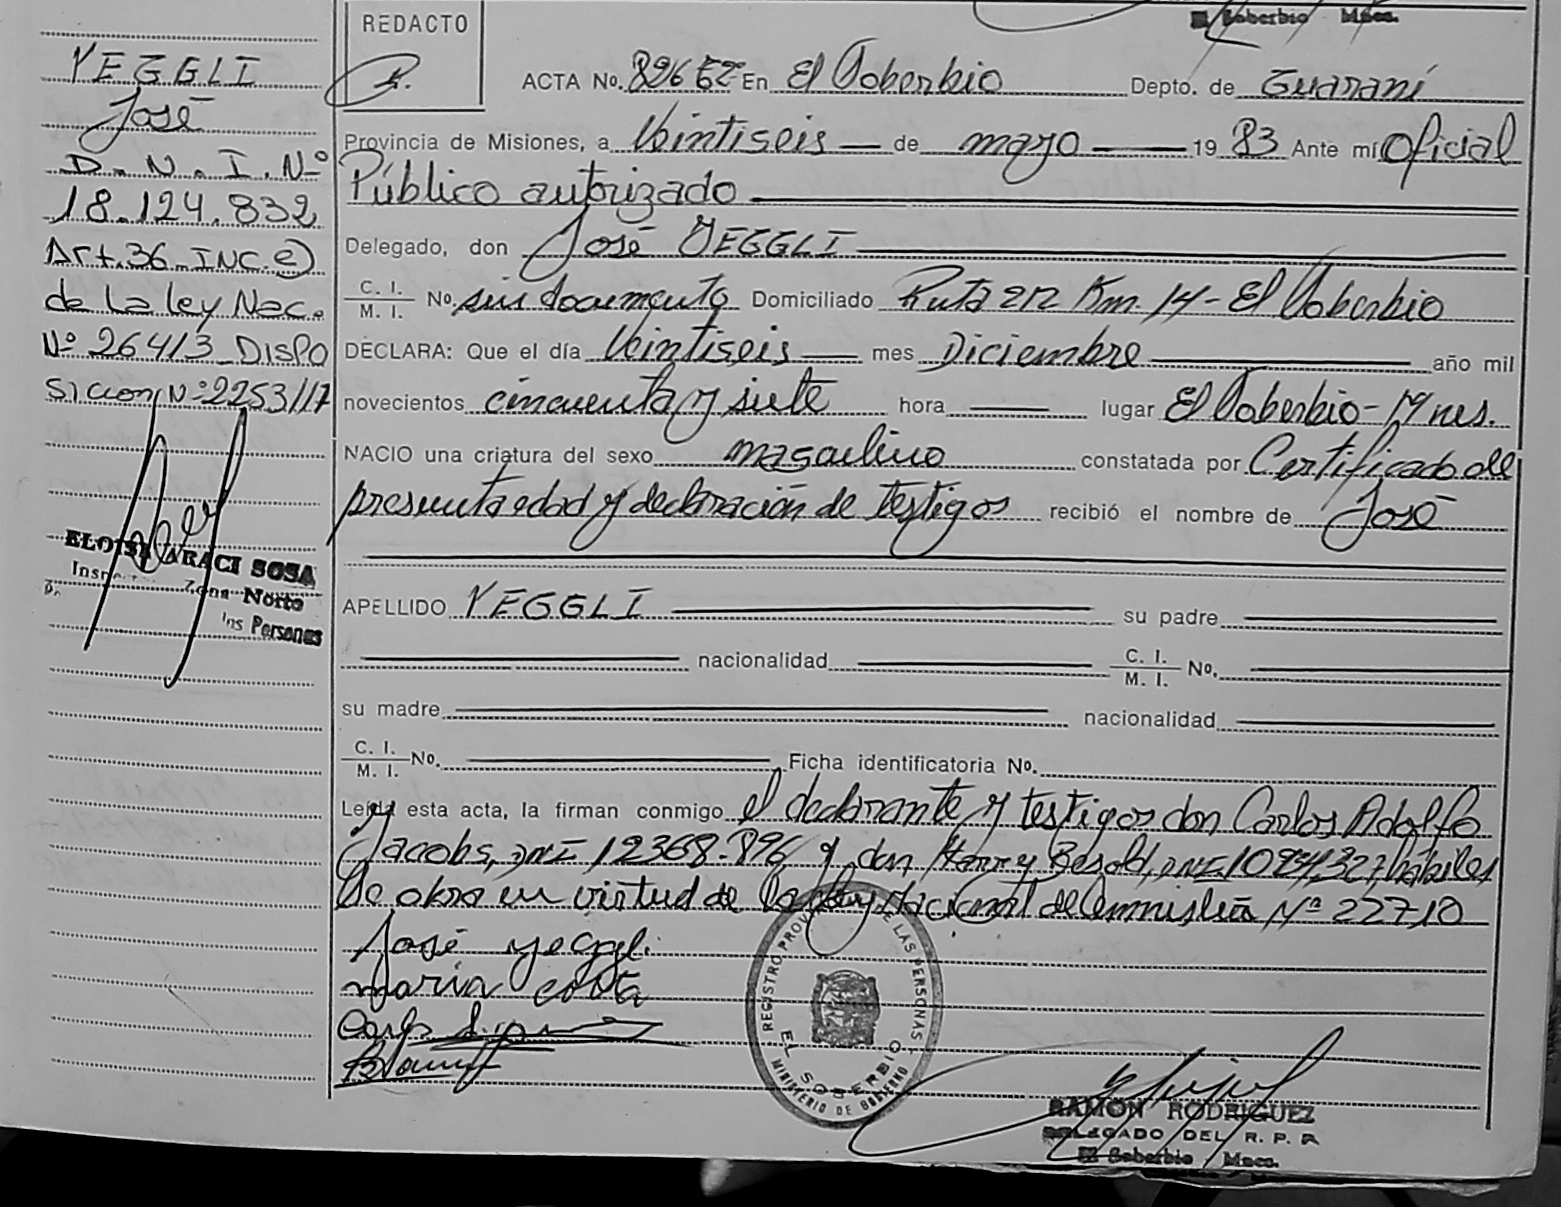 El Soberbio Mnes.
YEGGLI
José
D.N.I. Nº
18.124.832
Art. 36 INC. e)
de La ley Nac.
Nº 26413 DISPO
SICION Nº 2253/17
ELOISA ARACI SOSA
Zona Norte
las Personas
REDACTO
ACTA No. En El Soberbio Depto. de Guaraní
Provincia de Misiones, a Veintiseis de mayo 19 83 Ante mí Oficial
Público autorizado
Delegado, don José YEGGLI
C. I.
M. I. No. sin documento Domiciliado Ruta 212 Km. 14 - El Soberbio
DECLARA: Que el día Veintiseis mes Diciembre año mil
novecientos cincuenta y siete hora lugar El Soberbio - Mnes.
NACIO una criatura del sexo masculino constatada por Certificado de
presunta edad y declaración de testigos recibió el nombre de José
APELLIDO YEGGLI su padre
nacionalidad C. I.
M. I. No.
su madre nacionalidad
C. I.
M. I. No. Ficha identificatoria No.
Leída esta acta, la firman conmigo el declarante y testigos don Carlos Adolfo
Jacobs, DNI 12368.896 y don Harry Besold, DNI hábiles
Se obra en virtud de la ley Nacional de Amnistía Nº 22710
José yeggli
maria costa
Carlos
REGISTRO PROV. DE LAS PERSONAS
EL SOBERBIO
MINISTERIO DE GOBIERNO
RAMON RODRIGUEZ
DELEGADO DEL R. P. P.
El Soberbio Mnes.